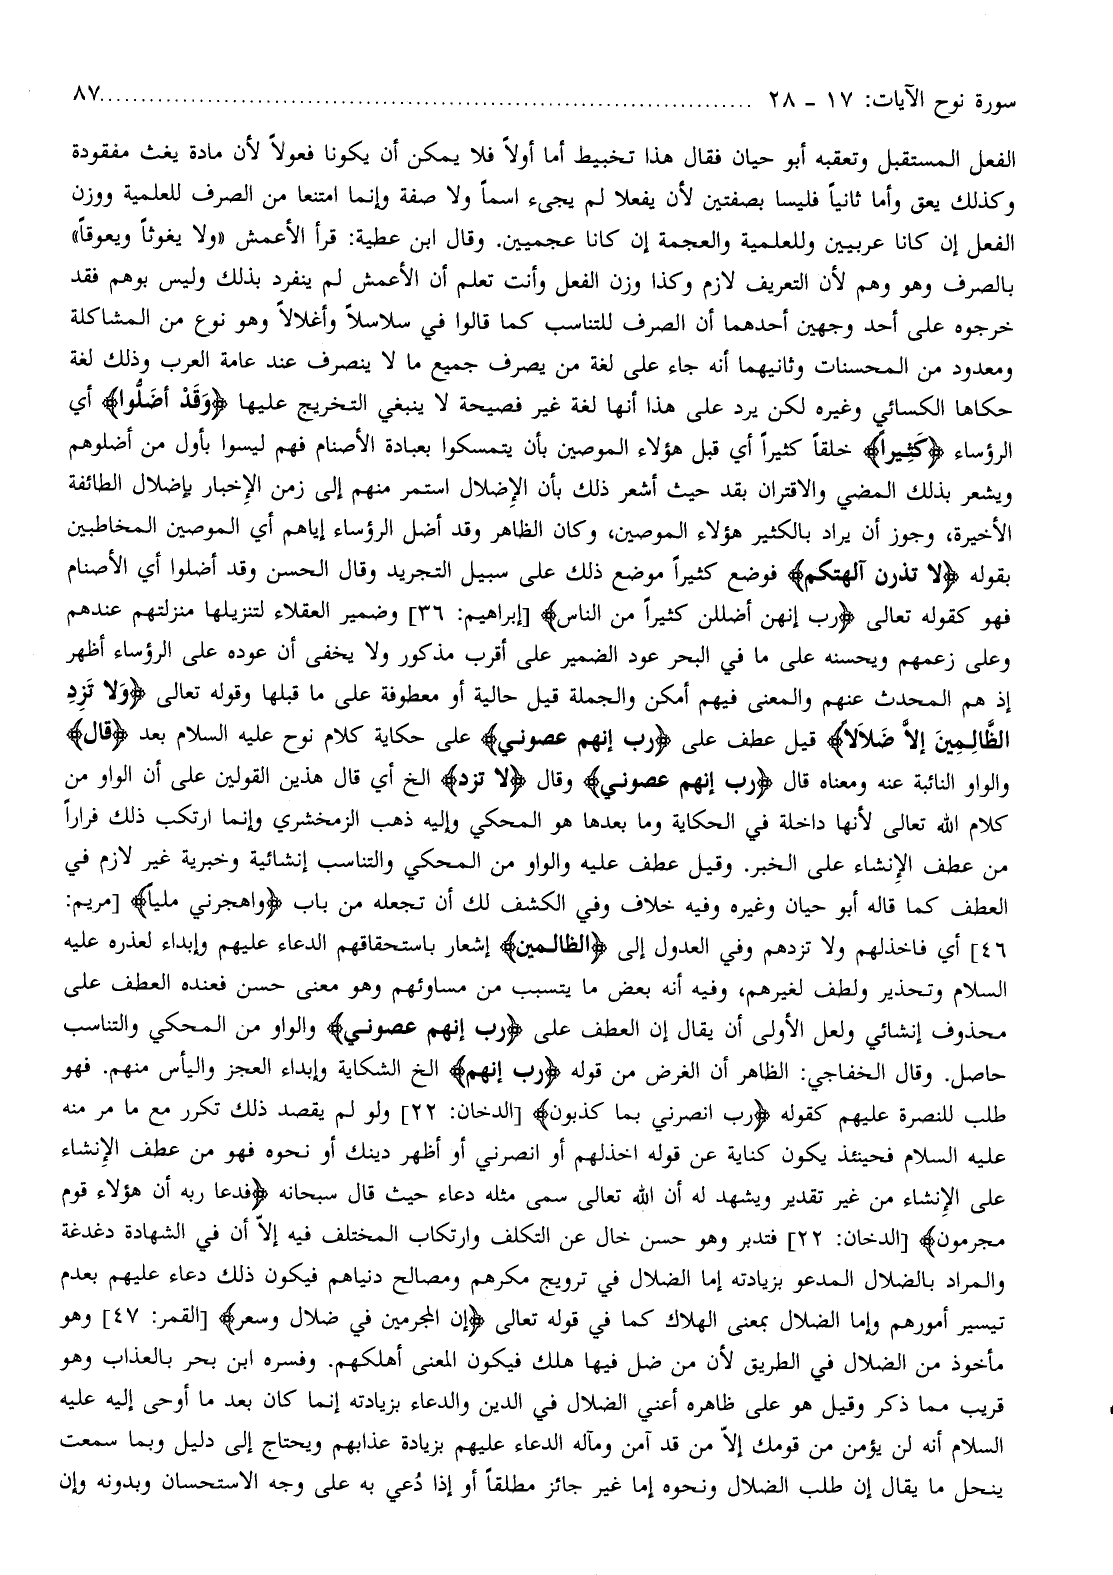 سورة نوح الآيات: ١٧ ـ ٢٨ ................................................................................ ٨٧
الفعل المستقبل وتعقبه أبو حيان فقال هذا تخبيط أما أولاً فلا يمكن أن يكونا فعولاً لأن مادة يغث مفقودة
وكذلك يعق وأما ثانياً فليسا بصفتين لأن يفعلا لم يجىء اسماً ولا صفة وإنما امتنعا من الصرف للعلمية ووزن
الفعل إن كانا عربيين وللعلمية والعجمة إن كانا عجميين. وقال ابن عطية: قرأ الأعمش «ولا يغوثاً ويعوقاً»
بالصرف وهو وهم لأن التعريف لازم وكذا وزن الفعل وأنت تعلم أن الأعمش لم ينفرد بذلك وليس بوهم فقد
خرجوه على أحد وجهين أحدهما أن الصرف للتناسب كما قالوا في سلاسلاً وأغلالاً وهو نوع من المشاكلة
ومعدود من المحسنات وثانيهما أنه جاء على لغة من يصرف جميع ما لا ينصرف عند عامة العرب وذلك لغة
حكاها الكسائي وغيره لكن يرد على هذا أنها لغة غير فصيحة لا ينبغي التخريج عليها ﴿وَقَدْ أضَلُّوا﴾ أي
الرؤساء ﴿كَثِيراً﴾ خلقاً كثيراً أي قبل هؤلاء الموصين بأن يتمسكوا بعبادة الأصنام فهم ليسوا بأول من أضلوهم
ويشعر بذلك المضي والاقتران بقد حيث أشعر ذلك بأن الإضلال استمر منهم إلى زمن الإخبار بإضلال الطائفة
الأخيرة، وجوز أن يراد بالكثير هؤلاء الموصين، وكان الظاهر وقد أضل الرؤساء إياهم أي الموصين المخاطبين
بقوله ﴿لا تذرن آلهتكم﴾ فوضع كثيراً موضع ذلك على سبيل التجريد وقال الحسن وقد أضلوا أي الأصنام
فهو كقوله تعالى ﴿رب إنهن أضللن كثيراً من الناس﴾ [إبراهيم: ٣٦] وضمير العقلاء لتنزيلها منزلتهم عندهم
وعلى زعمهم ويحسنه على ما في البحر عود الضمير على أقرب مذكور ولا يخفى أن عوده على الرؤساء أظهر
إذ هم المحدث عنهم والمعنى فيهم أمكن والجملة قيل حالية أو معطوفة على ما قبلها وقوله تعالى ﴿وَلا تَزِدِ
الظَّالِمِينَ إلاَّ ضَلاَلا﴾ قيل عطف على ﴿رب إنهم عصوني﴾ على حكاية كلام نوح عليه السلام بعد ﴿قال﴾
والواو النائبة عنه ومعناه قال ﴿رب إنهم عصوني﴾ وقال ﴿لا تزد﴾ الخ أي قال هذين القولين على أن الواو من
كلام الله تعالى لأنها داخلة في الحكاية وما بعدها هو المحكي وإليه ذهب الزمخشري وإنما ارتكب ذلك فراراً
من عطف الإنشاء على الخبر. وقيل عطف عليه والواو من المحكي والتناسب إنشائية وخبرية غير لازم في
العطف كما قاله أبو حيان وغيره وفيه خلاف وفي الكشف لك أن تجعله من باب ﴿واهجرني ملياً﴾ [مريم:
٤٦] أي فاخذلهم ولا تزدهم وفي العدول إلى ﴿الظالمين﴾ إشعار باستحقاقهم الدعاء عليهم وإبداء لعذره عليه
السلام وتحذير ولطف لغيرهم، وفيه أنه بعض ما يتسبب من مساوئهم وهو معنى حسن فعنده العطف على
محذوف إنشائي ولعل الأولى أن يقال إن العطف على ﴿رب إنهم عصوني﴾ والواو من المحكي والتناسب
حاصل. وقال الخفاجي: الظاهر أن الغرض من قوله ﴿رب إنهم﴾ الخ الشكاية وإبداء العجز واليأس منهم. فهو
طلب للنصرة عليهم كقوله ﴿رب انصرني بما كذبون﴾ [الدخان: ٢٢] ولو لم يقصد ذلك تكرر مع ما مر منه
عليه السلام فحينئذ يكون كناية عن قوله اخذلهم أو انصرني أو أظهر دينك أو نحوه فهو من عطف الإنشاء
على الإنشاء من غير تقدير ويشهد له أن الله تعالى سمى مثله دعاء حيث قال سبحانه ﴿فدعا ربه أن هؤلاء قوم
مجرمون﴾ [الدخان: ٢٢] فتدبر وهو حسن خال عن التكلف وارتكاب المختلف فيه إلاّ أن في الشهادة دغدغة
والمراد بالضلال المدعو بزيادته إما الضلال في ترويج مكرهم ومصالح دنياهم فيكون ذلك دعاء عليهم بعدم
تيسير أمورهم وإما الضلال بمعنى الهلاك كما في قوله تعالى ﴿إن المجرمين في ضلال وسعر﴾ [القمر: ٤٧] وهو
مأخوذ من الضلال في الطريق لأن من ضل فيها هلك فيكون المعنى أهلكهم. وفسره ابن بحر بالعذاب وهو
قريب مما ذكر وقيل هو على ظاهره أعني الضلال في الدين والدعاء بزيادته إنما كان بعد ما أوحى إليه عليه
السلام أنه لن يؤمن من قومك إلاّ من قد آمن ومآله الدعاء عليهم بزيادة عذابهم ويحتاج إلى دليل وبما سمعت
ينحل ما يقال إن طلب الضلال ونحوه إما غير جائز مطلقاً أو إذا دُعي به على وجه الاستحسان وبدونه وإن